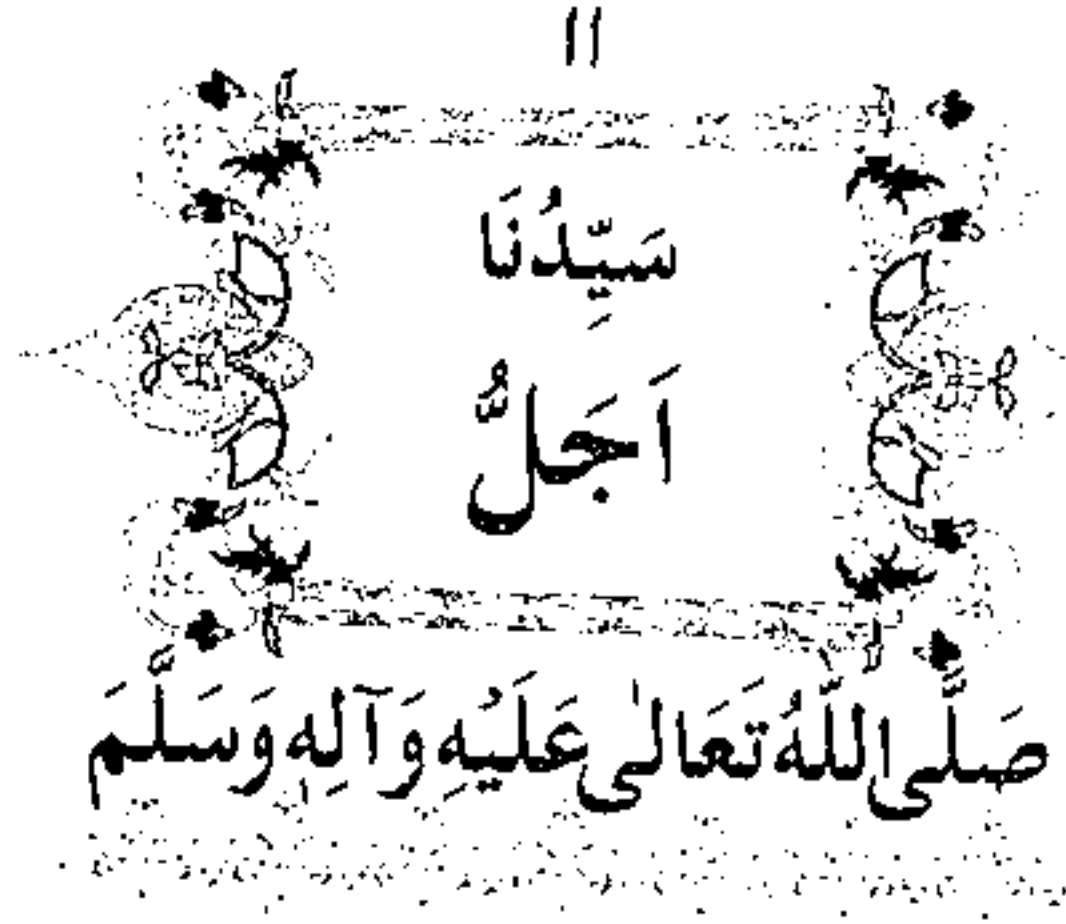 ۱۱
سَيِّدُنَا
اَجَلُّ
صَلَّى اللّٰهُ تَعَالٰى عَلَيْهِ وَآلِهٖ وَسَلَّمَ